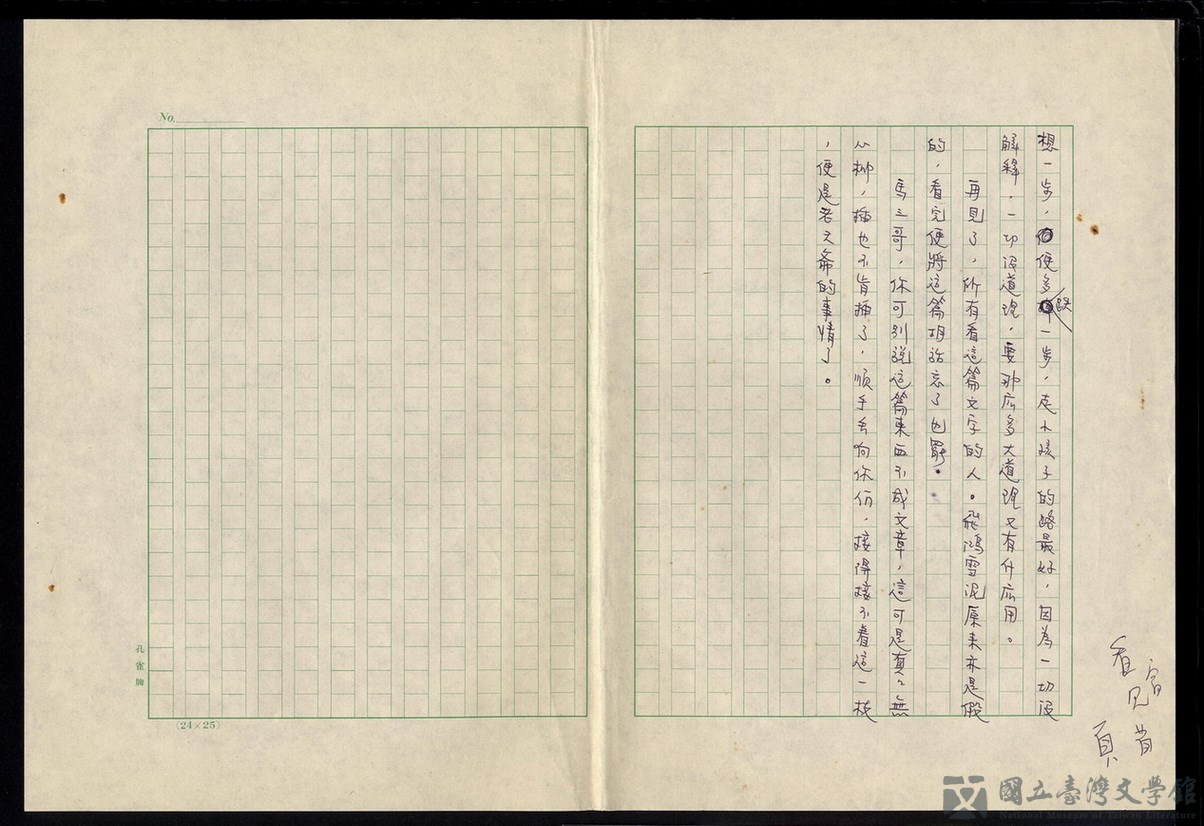 想一步，便多跌一步，走小孩子的路最好，因為一切沒
解釋，一切沒道理，要那広多大道理又有什広用。
再見了，所有看這篇文字的人。飛鴻雪泥原来亦是假
的，看完便將這篇胡話忘了也罷。
馬三哥，你可別說這篇東西不成文章，這可是真々無
心柳，插也不肯插了，順手丟向你们，接得接不着這一枝
，便是老天爺的事情了。
No.
孔雀牌
(24×25)
國立臺灣文學館
National Museum of Taiwan Literature